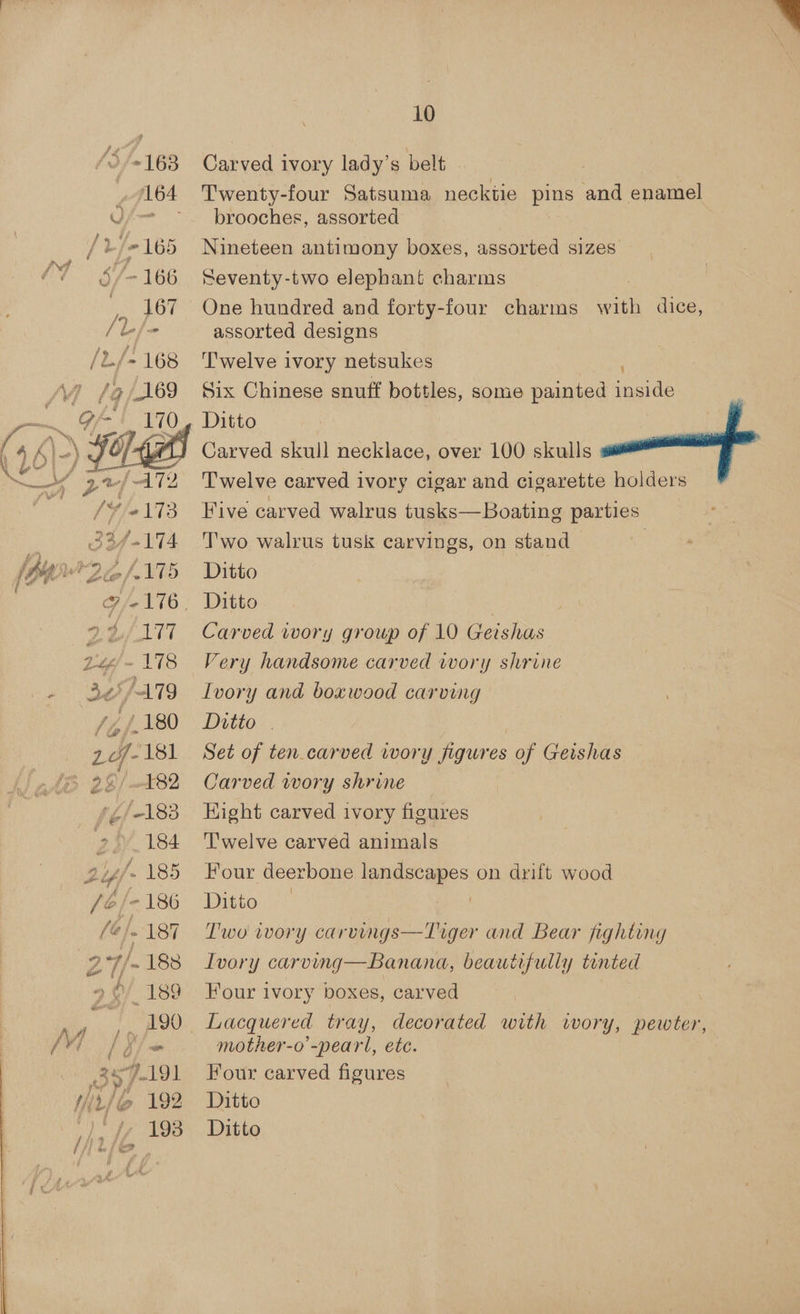 10
15/- 163 Carved ivory lady's belt
164 Twenty-four Satsuma necktie pins and enamel
brooches, assorted
12/- 165 Nineteen antimony boxes, assorted sizes
166 Seventy-two elephant charms
167 One hundred and forty-four charms with dice,
12/- assorted designs
12/- 168 Twelve ivory netsukes
169 Six Chinese snuff bottles, some painted inside
170 Ditto
Carved skull necklace, over 100 skulls
172 Twelve carved ivory cigar and cigarette holders
173 Five carved walrus tusks—Boating parties
174 Two walrus tusk carvings, on stand
175 Ditto
176 Ditto
177 Carved ivory group of 10 Geishas
178 Very handsome carved ivory shrine
179 Ivory and boxwood carving
180 Ditto
181 Set of ten carved ivory figures of Geishas
182 Carved ivory shrine
183 Eight carved ivory figures
184 Twelve carved animals
185 Four deerbone landscapes on drift wood
16/- 186 Ditto
187 Two ivory carvings—Tiger and Bear fighting
27/- 188 Ivory carving—Banana, beautifully tinted
189 Four ivory boxes, carved
190 Lacquered tray, decorated with ivory, pewter,
mother-o'-pearl, etc.
191 Four carved figures
192 Ditto
193 Ditto